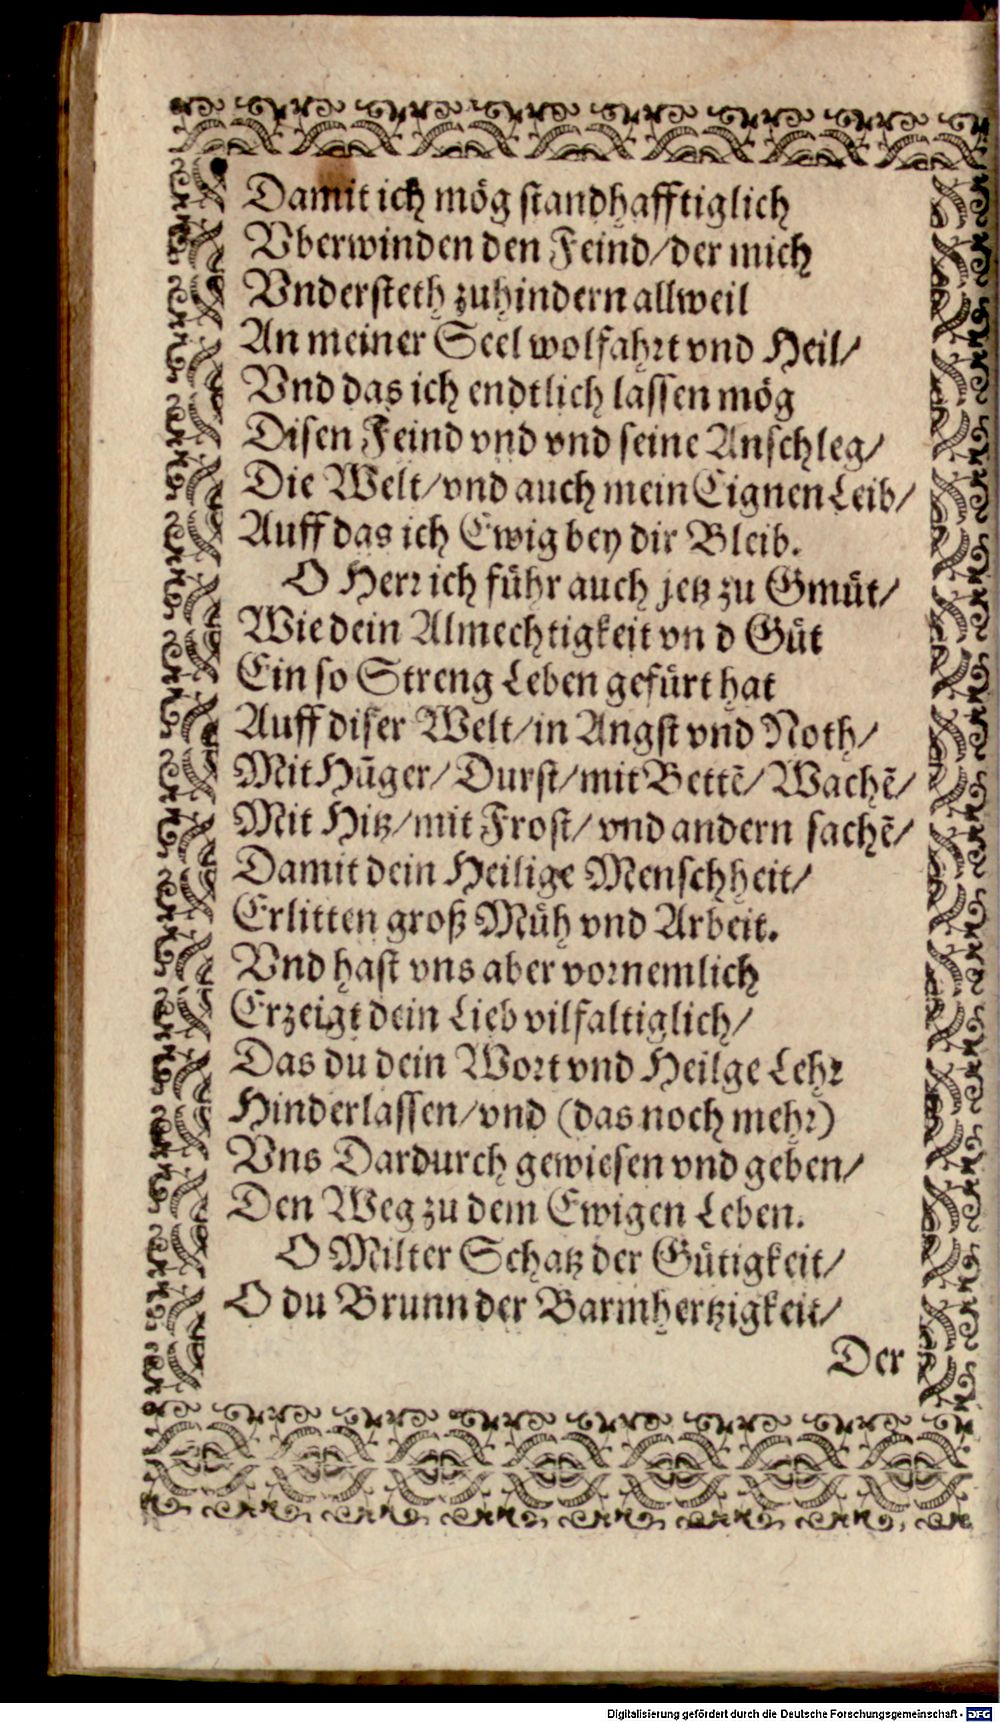 Damit ich mög standhafftiglich
Vberwinden den Feind/der mich
Vndersteth zuhindern allweil
An meiner Seel wolfahrt vnd Heil/
Vnd das ich endtlich lassen mög
Disen Feind vnd vnd seine Anschleg/
Die Welt/vnd auch mein Eignen Leib/
Auff das ich Ewig bey dir Bleib.
O Herr ich führ auch jetz zu Gmüt/
Wie dein Almechtigkeit vn d Güt
Ein so Streng Leben gefürt hat
Auff diser Welt/in Angst vnd Noth/
Mit Hũger/Durst/mit Bettẽ/Wachẽ/
Mit Hitz/mit Frost/vnd andern sachẽ/
Damit dein Heilige Menschheit/
Erlitten groß Müh vnd Arbeit.
Vnd hast vns aber vornemlich
Erzeigt dein Lieb vilfaltiglich/
Das du dein Wort vnd Heilge Lehr
Hinderlassen/vnd (das noch mehr)
Vns Dardurch gewiesen vnd geben/
Den Weg zu dem Ewigen Leben.
O Milter Schatz der Gütigkeit/
O du Brunn der Barmhertzigkeit/
Der
Digitalisierung gefördert durch die Deutsche Forschungsgemeinschaft - DFG